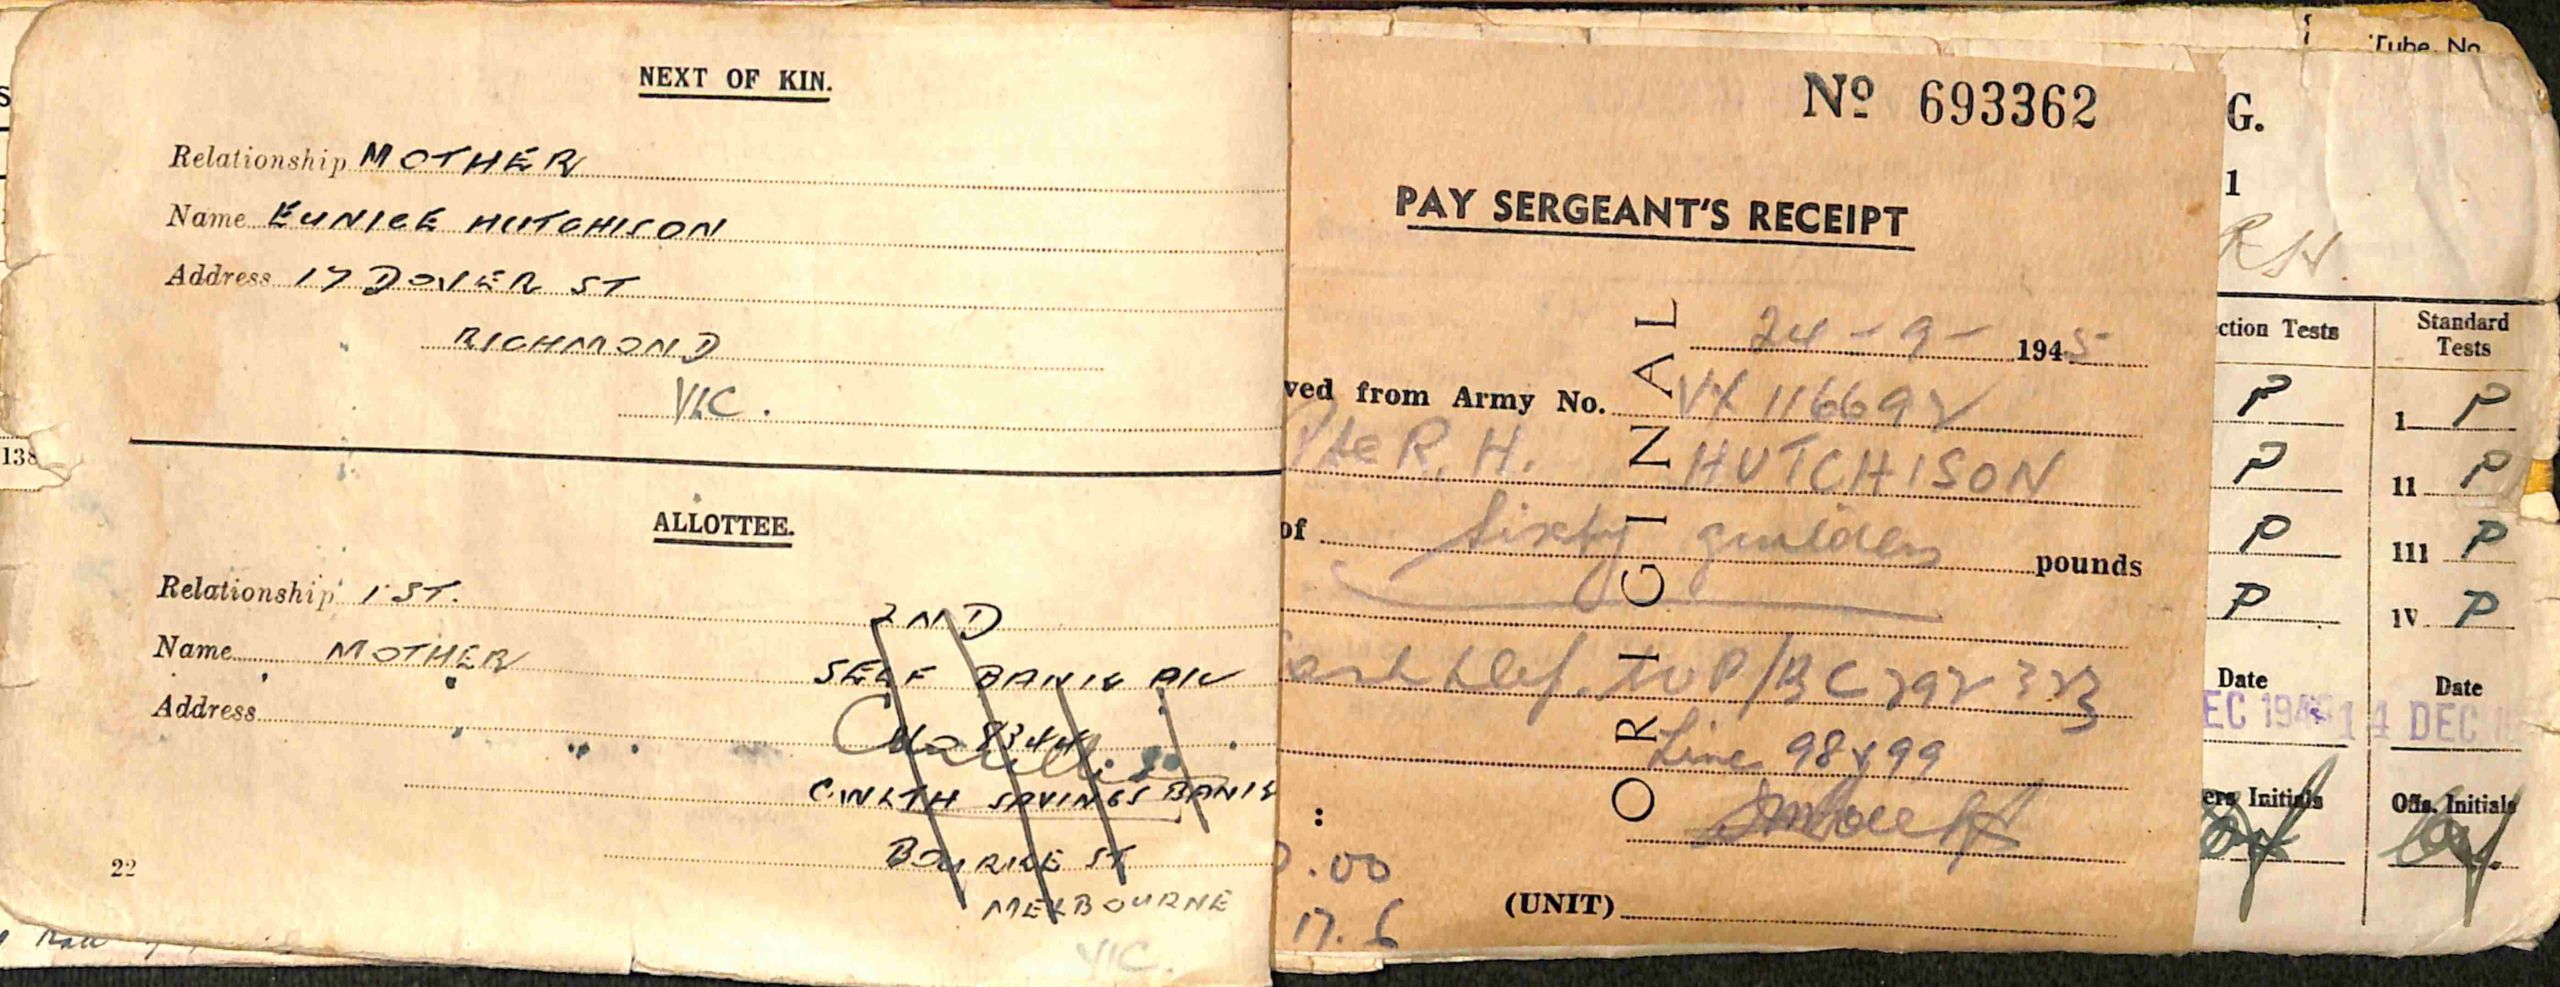 NEXT OF KIN.
Relationship MOTHER
Name EUNICE HUTCHISON
Address 17 DOVER ST
RICHMOND
VIC.
ALLOTTEE.
Relationship 1ST.
2ND
Name MOTHER
SELF BANK A/C
Address
No 8344
C'WLTH SAVINGS BANK
BOURKE ST
MELBOURNE
VIC.
22
138
Nº 693362
PAY SERGEANT'S RECEIPT
ORIGINAL
24-9-1945
ved from Army No. VX116692
Pte R. H. HUTCHISON
of Sixty guilders pounds
Line 98 & 99
:
.00
17.6
(UNIT)
Tube No
G.
1
RH.
ction Tests
Standard Tests
P
I P
P
II P
P
III P
P
IV P
Date
Date
EC 194
14 DEC
ers Initials
Offs. Initials